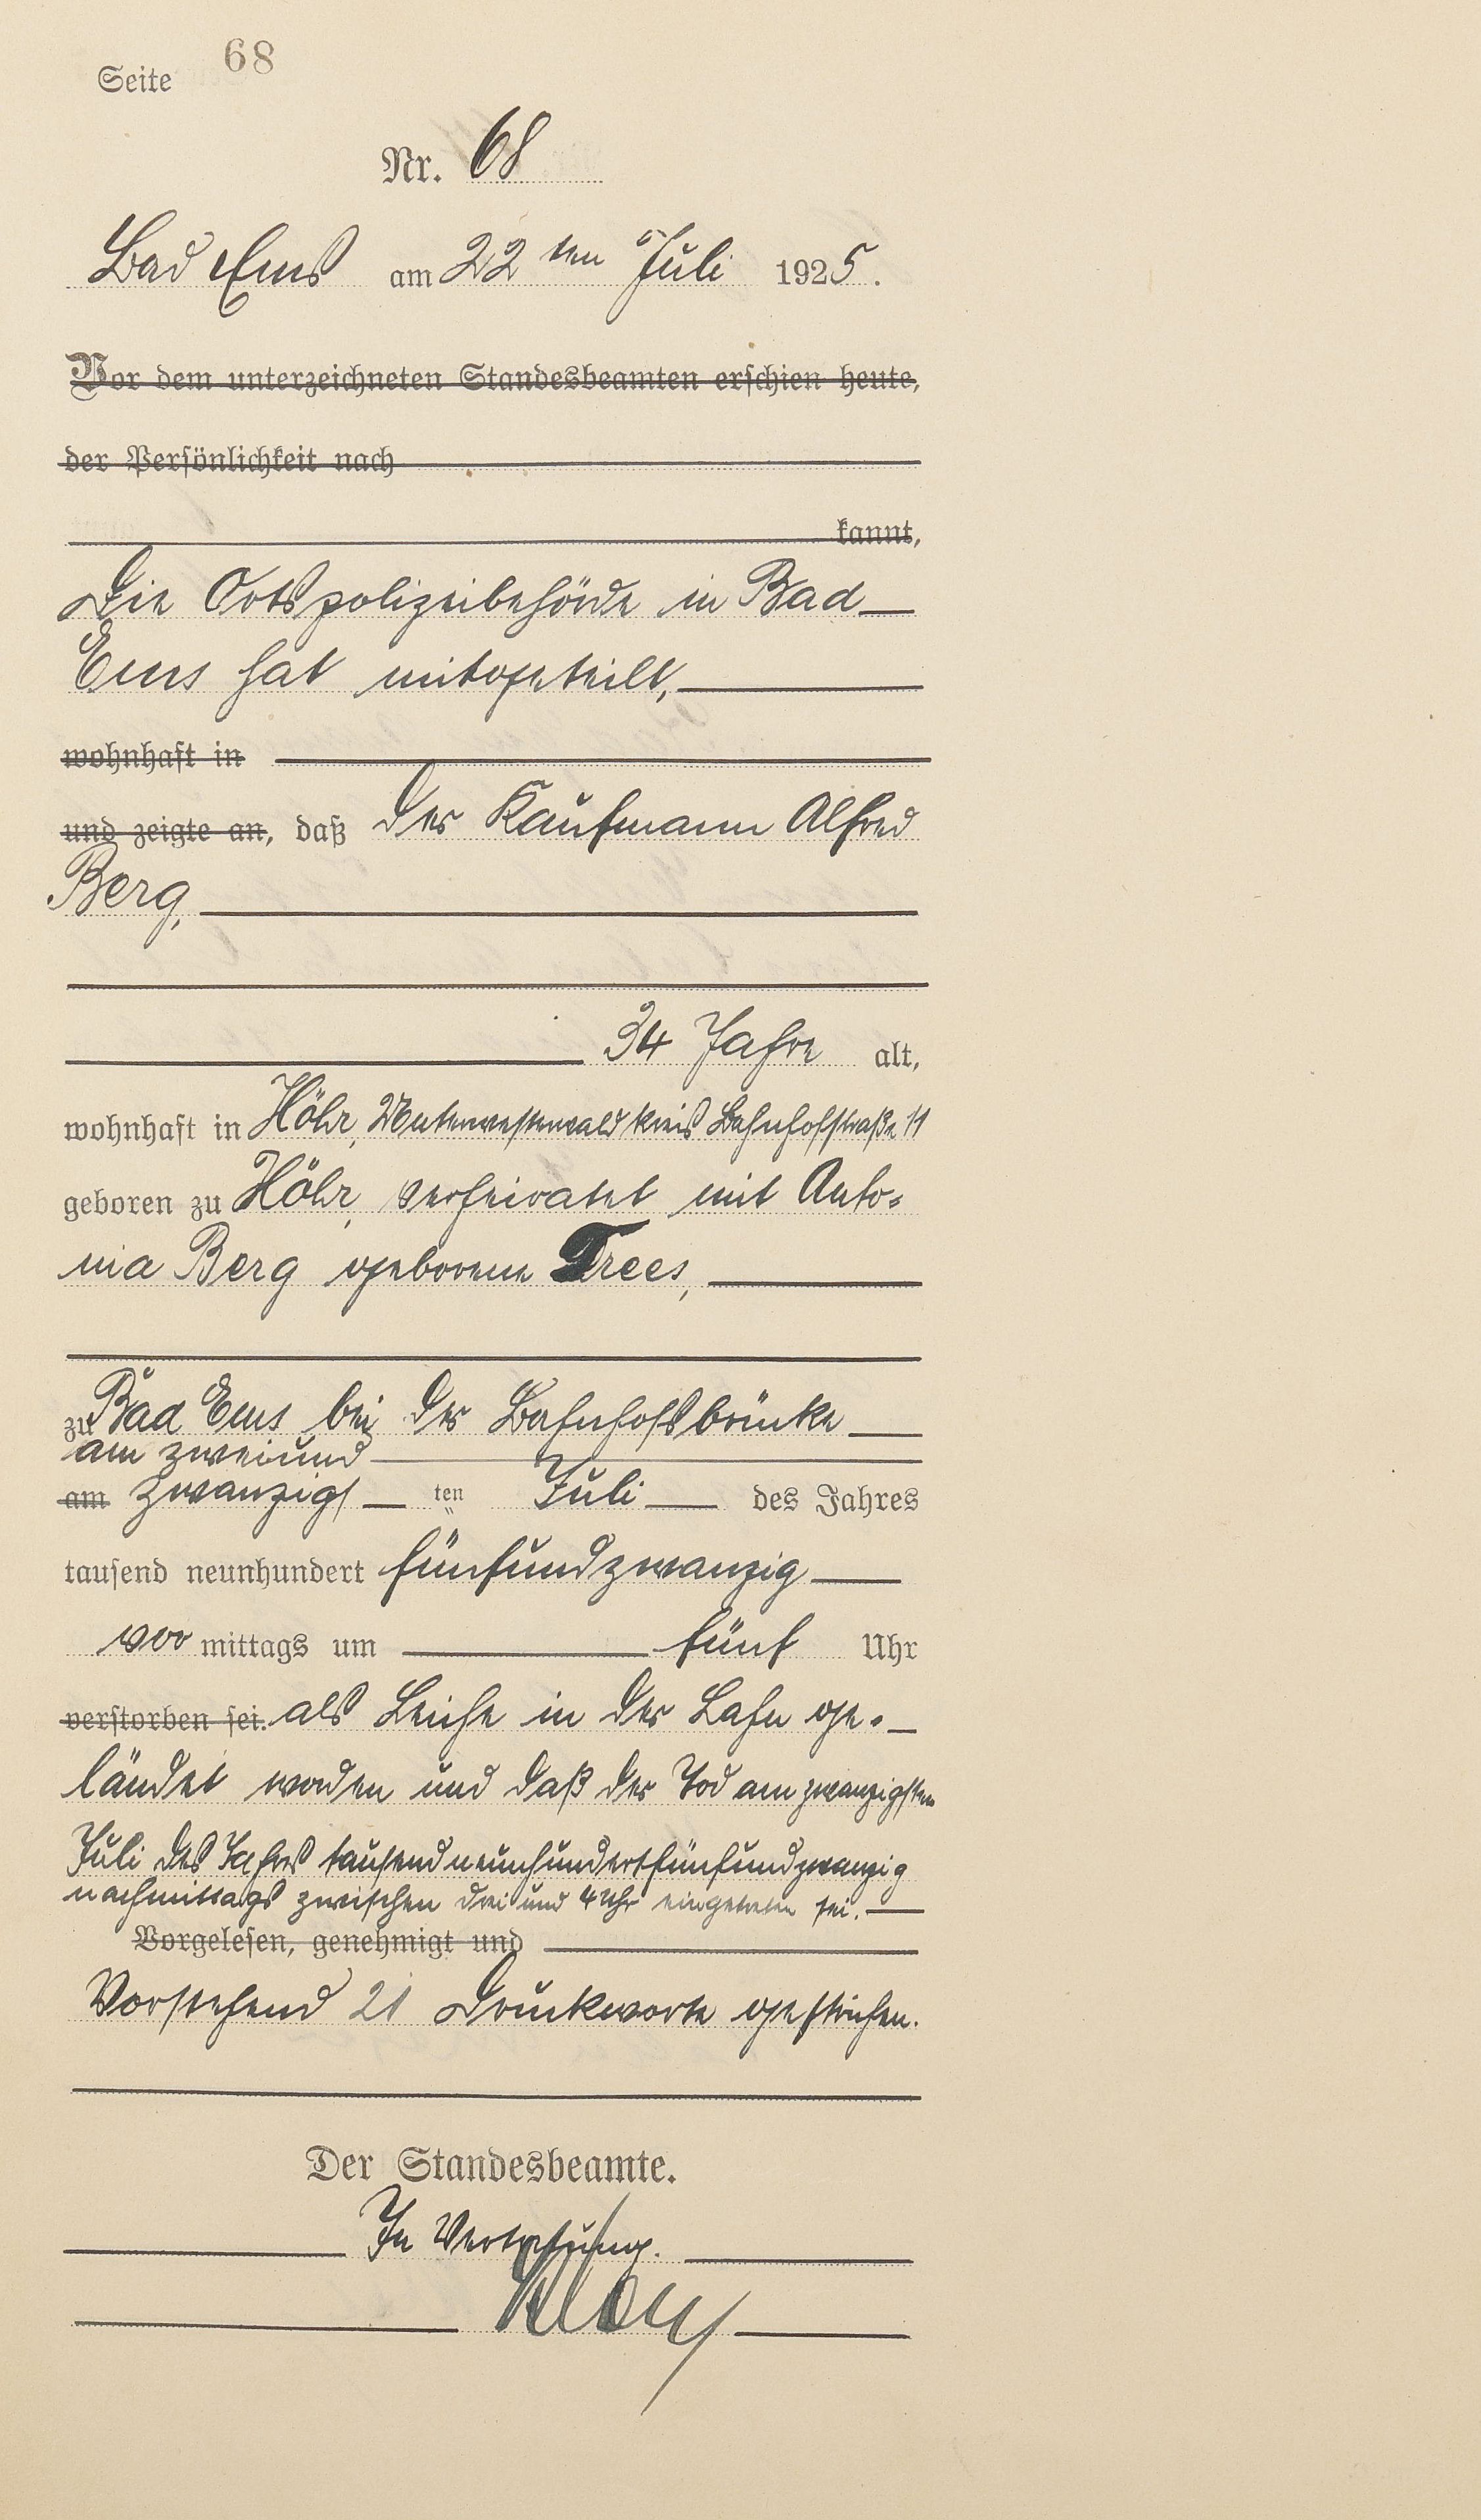 Seite 68
Nr. 68
Bad Ems am 22ten Juli 1925.
Vor dem unterzeichneten Standesbeamten erschien heute,
der Persönlichkeit nach
kannt,
Die Ortspolizeibehörde in Bad
Ems hat mitgeteilt,
wohnhaft in
und zeigte an, daß der Kaufmann Alfred
Berg,
34 Jahre alt,
wohnhaft in Höhr, Unterwesterwaldkreis Bahnhofstraße 11
geboren zu Höhr, verheiratet mit Anto-
nia Berg geborene Trees,
zu Bad Ems bei der Bahnhofsbrücke
am zweiund
am zwanzigsten Juli des Jahres
tausend neunhundert fünfundzwanzig
vormittags um fünf Uhr
verstorben sei. als Leiche in der Lahn ge-
ländet worden und daß der Tod am zwanzigsten
Juli des Jahres tausendneunhundertfünfundzwanzig
nachmittags zwischen drei und 4 Uhr eingetreten sei.
Vorgelesen, genehmigt und
Vorstehend 21 Druckworte gestrichen.
Der Standesbeamte.
In Vertretung.